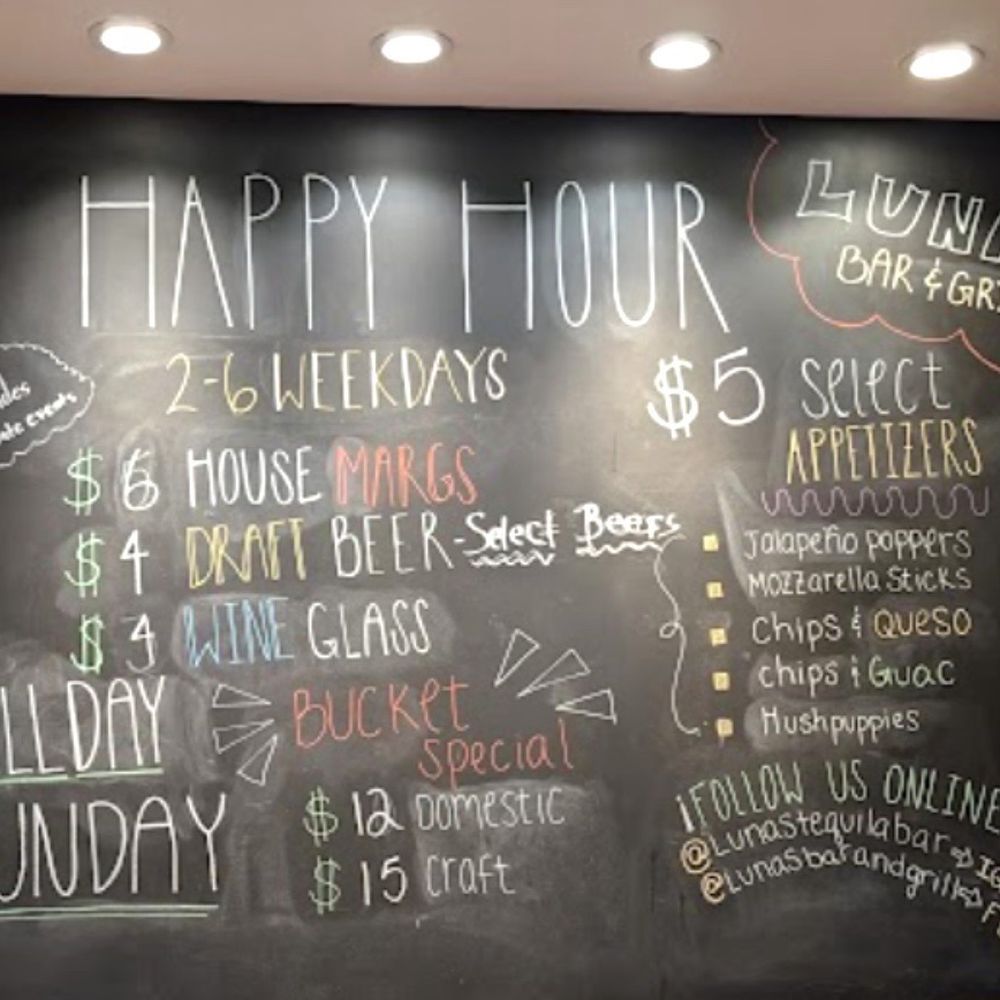 HAPPY HOUR
LUN
BAR & GR
2-6 WEEKDAYS
$6 HOUSE MARGS
$4 DRAFT BEER - Select Beers
WINE GLASS
LLDAY
UNDAY
BUCKET
special
$12 DOMESTIC
$15 craft
$5 select
APPETIZERS
Jalapeño poppers
Mozzarella Sticks
Chips & QUESO
chips & Guac
Hushpuppies
¡FOLLOW US ONLINE
@Lunastequilabar ⇨ IG
@Lunasbarandgrill ⇨ F